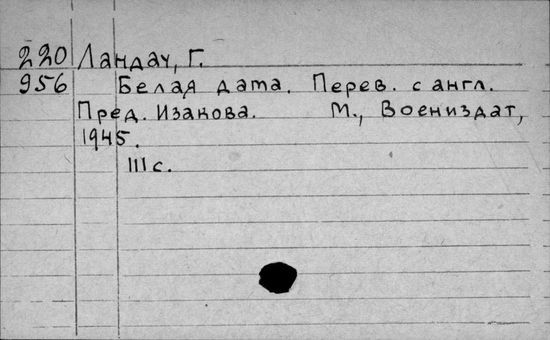 220 Ландау, Г.
956 Белая дата. Перев. с англ.
Пред. Изакова. М., Воениздат,
1945.
111 с.